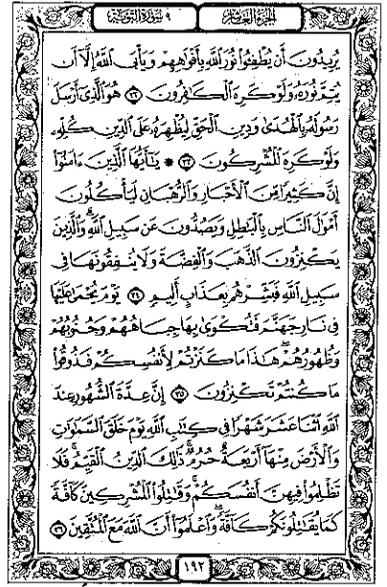 الجزء العاشر
٩ سورة التوبة
يُرِيدُونَ أَن يُطْفِـُٔوا۟ نُورَ ٱللَّهِ بِأَفْوَٰهِهِمْ وَيَأْبَى ٱللَّهُ إِلَّآ أَن
يُتِمَّ نُورَهُۥ وَلَوْ كَرِهَ ٱلْكَـٰفِرُونَ ٣٢ هُوَ ٱلَّذِىٓ أَرْسَلَ
رَسُولَهُۥ بِٱلْهُدَىٰ وَدِينِ ٱلْحَقِّ لِيُظْهِرَهُۥ عَلَى ٱلدِّينِ كُلِّهِۦ
وَلَوْ كَرِهَ ٱلْمُشْرِكُونَ ٣٣ ۞ يَـٰٓأَيُّهَا ٱلَّذِينَ ءَامَنُوٓا۟
إِنَّ كَثِيرًا مِّنَ ٱلْأَحْبَارِ وَٱلرُّهْبَانِ لَيَأْكُلُونَ
أَمْوَٰلَ ٱلنَّاسِ بِٱلْبَـٰطِلِ وَيَصُدُّونَ عَن سَبِيلِ ٱللَّهِ ۗ وَٱلَّذِينَ
يَكْنِزُونَ ٱلذَّهَبَ وَٱلْفِضَّةَ وَلَا يُنفِقُونَهَا فِى
سَبِيلِ ٱللَّهِ فَبَشِّرْهُم بِعَذَابٍ أَلِيمٍ ٣٤ يَوْمَ يُحْمَىٰ عَلَيْهَا
فِى نَارِ جَهَنَّمَ فَتُكْوَىٰ بِهَا جِبَاهُهُمْ وَجُنُوبُهُمْ
وَظُهُورُهُمْ ۖ هَـٰذَا مَا كَنَزْتُمْ لِأَنفُسِكُمْ فَذُوقُوا۟
مَا كُنتُمْ تَكْنِزُونَ ٣٥ إِنَّ عِدَّةَ ٱلشُّهُورِ عِندَ
ٱللَّهِ ٱثْنَا عَشَرَ شَهْرًا فِى كِتَـٰبِ ٱللَّهِ يَوْمَ خَلَقَ ٱلسَّمَـٰوَٰتِ
وَٱلْأَرْضَ مِنْهَآ أَرْبَعَةٌ حُرُمٌ ۚ ذَٰلِكَ ٱلدِّينُ ٱلْقَيِّمُ ۚ فَلَا
تَظْلِمُوا۟ فِيهِنَّ أَنفُسَكُمْ ۚ وَقَـٰتِلُوا۟ ٱلْمُشْرِكِينَ كَآفَّةً
كَمَا يُقَـٰتِلُونَكُمْ كَآفَّةً ۚ وَٱعْلَمُوٓا۟ أَنَّ ٱللَّهَ مَعَ ٱلْمُتَّقِينَ ٣٦
١٩٢